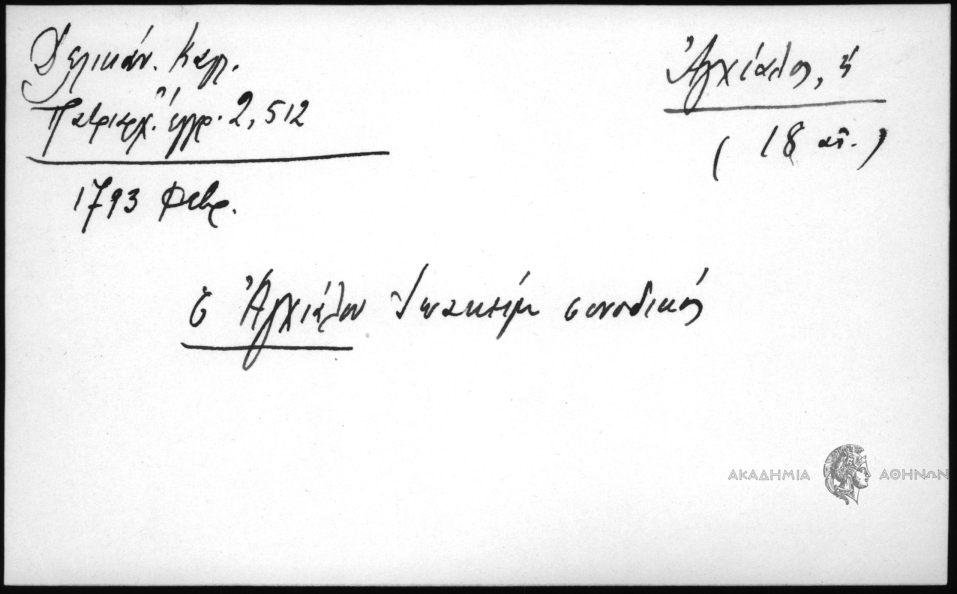 Δελικάν. Καλ.
Πατριαρχ. ἔγγρ. 2, 512
1793 Φεβρ.
Ἀγχίαλος, ἡ
(18 αἰ.)
ὁ Ἀγχιάλου Ἰωακεὶμ συνοδικός
ΑΚΑΔΗΜΙΑ ΑΘΗΝΩΝ